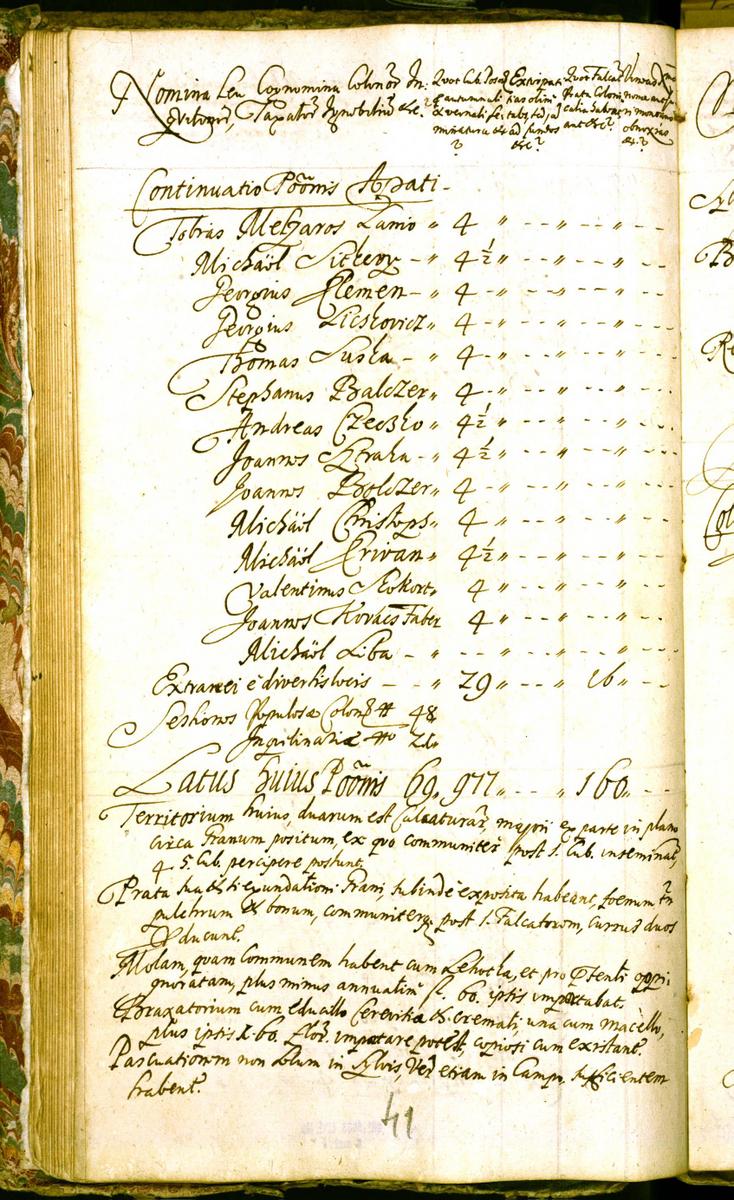 Nomina seu Cognomina Colonor In:
quilinor, Taxator Ignobiliū etc?
Quot Cub. Posoñ
autumnali
et vernali se
minatura etc
?
Extirpati
tias olim
ad fundos
etc?
Quot Falcat
Prata Coloni
ant etc?
obnoxias
etc?
Continuatio Poōnis Apati -
Tobias Meszaros Lanio „ 4 „ -- „ -- „ --
Michäel - „ 4½ „ -- „ -- „ --
Georgius Klemen - „ 4 -- „ -- „ -- „ --
Georgius Licskovicz „ 4 -- „ -- „ -- „ --
Thomas Suska - „ 4 -- „ -- „ -- „ --
Stephanus Balczer „ 4 -- „ -- „ -- „ --
Andreas Czeczko „ 4½ „ -- „ -- „ --
Joannes Straka - „ 4½ „ -- „ -- „ --
Joannes Bolczer „ 4 „ -- „ -- „ --
Michäel Christoph „ 4 „ -- „ -- „ --
Michäel Krivan „ 4½ „ -- „ -- „ --
Valentinus „ 4 „ -- „ -- „ --
Joannes Kovacs Faber 4 „ -- „ -- „ --
Michäel Liba - „ - -- „ -- „ --
Extranei è diversis locis - - „ 29 „ -- „ 16 „ --
Sessiones Populosæ Colon 48
Inquilinariæ 21
Latus huius Poōnis 69 „ 977 „ -- „ 160 „ --
Territorium huius, duarum est Calcaturar, majori ex parte in plano
circa Granum positum, ex quo communiter post 1. Cub. inseminat,
4. 5. Cub. percipere possunt,
Prata sua etsi exundationi Grani, subinde exposita habeant, foenum tñ
pulchrum et bonum, communiterq post 1. Falcatorem, currus duos
educunt.
Molam, quam Communem habent cum Lehotka, et pro
gnoratam, plus minus annuatim fl. 60. ipsis importabat.
Braxatorium cum educillo Cerevisiæ et cremati, una cum macello,
plus ipsis X. 60. flor. importare potest, copiosi cum existant.
Pascuationem non solum in Sylvis, Ver etiam in Camp sufficientem
habent.
41